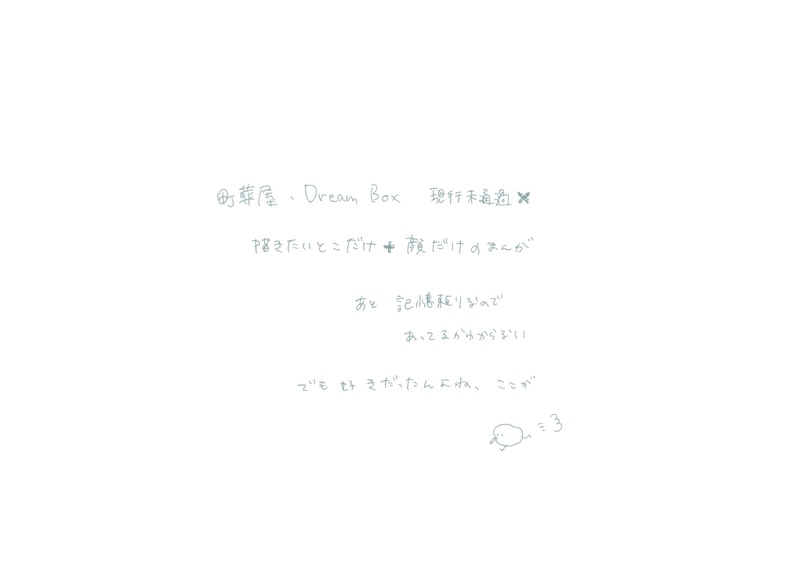 町葬屋、Dream Box 現行未通過✖
描きたいとこだけ+顔だけのまんが
あと 記憶頼りなので
あってるかわからない
でも好きだったんよね、ここが